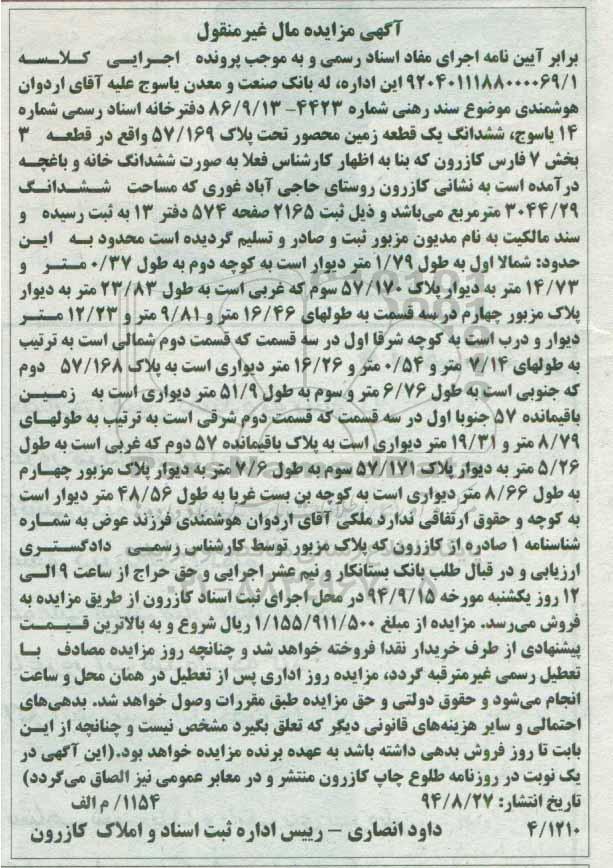 آگهی مزایده مال غیرمنقول
برابر آیین نامه اجرای مفاد اسناد رسمی و به موجب پرونده اجرایی کلاسه
۹۲۰۴۰۱۱۱۸۸۰۰۰۰۶۹/۱ این اداره، له بانک صنعت و معدن یاسوج علیه آقای اردوان
هوشمندی موضوع سند رهنی شماره ۴۴۲۳- ۸۶/۹/۱۳ دفترخانه اسناد رسمی شماره
۱۴ یاسوج، ششدانگ یک قطعه زمین محصور تحت پلاک ۵۷/۱۶۹ واقع در قطعه ۳
بخش ۷ فارس کازرون که بنا به اظهار کارشناس فعلا به صورت ششدانگ خانه و باغچه
درآمده است به نشانی کازرون روستای حاجی آباد غوری که مساحت ششدانگ
۳۰۴۴/۲۹ مترمربع می‌باشد و ذیل ثبت ۲۱۶۵ صفحه ۵۷۴ دفتر ۱۳ به ثبت رسیده و
سند مالکیت به نام مدیون مزبور ثبت و صادر و تسلیم گردیده است محدود به این
حدود: شمالا اول به طول ۱/۷۹ متر دیوار است به کوچه دوم به طول ۰/۳۷ متر و
۱۴/۷۳ متر به دیوار پلاک ۵۷/۱۷۰ سوم که غربی است به طول ۲۳/۸۳ متر به دیوار
پلاک مزبور چهارم در سه قسمت به طولهای ۱۶/۴۶ متر و ۹/۸۱ متر و ۱۲/۲۳ متر
دیوار و درب است به کوچه شرقا اول در سه قسمت که قسمت دوم شمالی است به ترتیب
به طولهای ۷/۱۴ متر و ۰/۵۴ متر و ۱۶/۲۶ متر دیواری است به پلاک ۵۷/۱۶۸ دوم
که جنوبی است به طول ۶/۷۶ متر و سوم به طول ۵۱/۹ متر دیواری است به زمین
باقیمانده ۵۷ جنوبا اول در سه قسمت که قسمت دوم شرقی است به ترتیب به طولهای
۸/۷۹ متر و ۱۹/۳۱ متر دیواری است به پلاک باقیمانده ۵۷ دوم که غربی است به طول
۵/۲۶ متر به دیوار پلاک ۵۷/۱۷۱ سوم به طول ۷/۶ متر به دیوار پلاک مزبور چهارم
به طول ۸/۶۶ متر دیواری است به کوچه بن بست غربا به طول ۴۸/۵۶ متر دیوار است
به کوچه و حقوق ارتفاقی ندارد ملکی آقای اردوان هوشمندی فرزند عوض به شماره
شناسنامه ۱ صادره از کازرون که پلاک مزبور توسط کارشناس رسمی دادگستری
ارزیابی و در قبال طلب بانک بستانکار و نیم عشر اجرایی و حق حراج از ساعت ۹ الی
۱۲ روز یکشنبه مورخه ۹۴/۹/۱۵ در محل اجرای ثبت اسناد کازرون از طریق مزایده به
فروش می‌رسد. مزایده از مبلغ ۱/۱۵۵/۹۱۱/۵۰۰ ریال شروع و به بالاترین قیمت
پیشنهادی از طرف خریدار نقدا فروخته خواهد شد و چنانچه روز مزایده مصادف با
تعطیل رسمی غیرمترقبه گردد، مزایده روز اداری پس از تعطیل در همان محل و ساعت
انجام می‌شود و حقوق دولتی و حق مزایده طبق مقررات وصول خواهد شد. بدهی‌های
احتمالی و سایر هزینه‌های قانونی دیگر که تعلق بگیرد مشخص نیست و چنانچه از این
بابت تا روز فروش بدهی داشته باشد به عهده برنده مزایده خواهد بود.(این آگهی در
یک نوبت در روزنامه طلوع چاپ کازرون منتشر و در معابر عمومی نیز الصاق می‌گردد)
تاریخ انتشار: ۹۴/۸/۲۷ ۱۱۵۴/ م الف
۴/۱۲۱۰ داود انصاری – رییس اداره ثبت اسناد و املاک کازرون